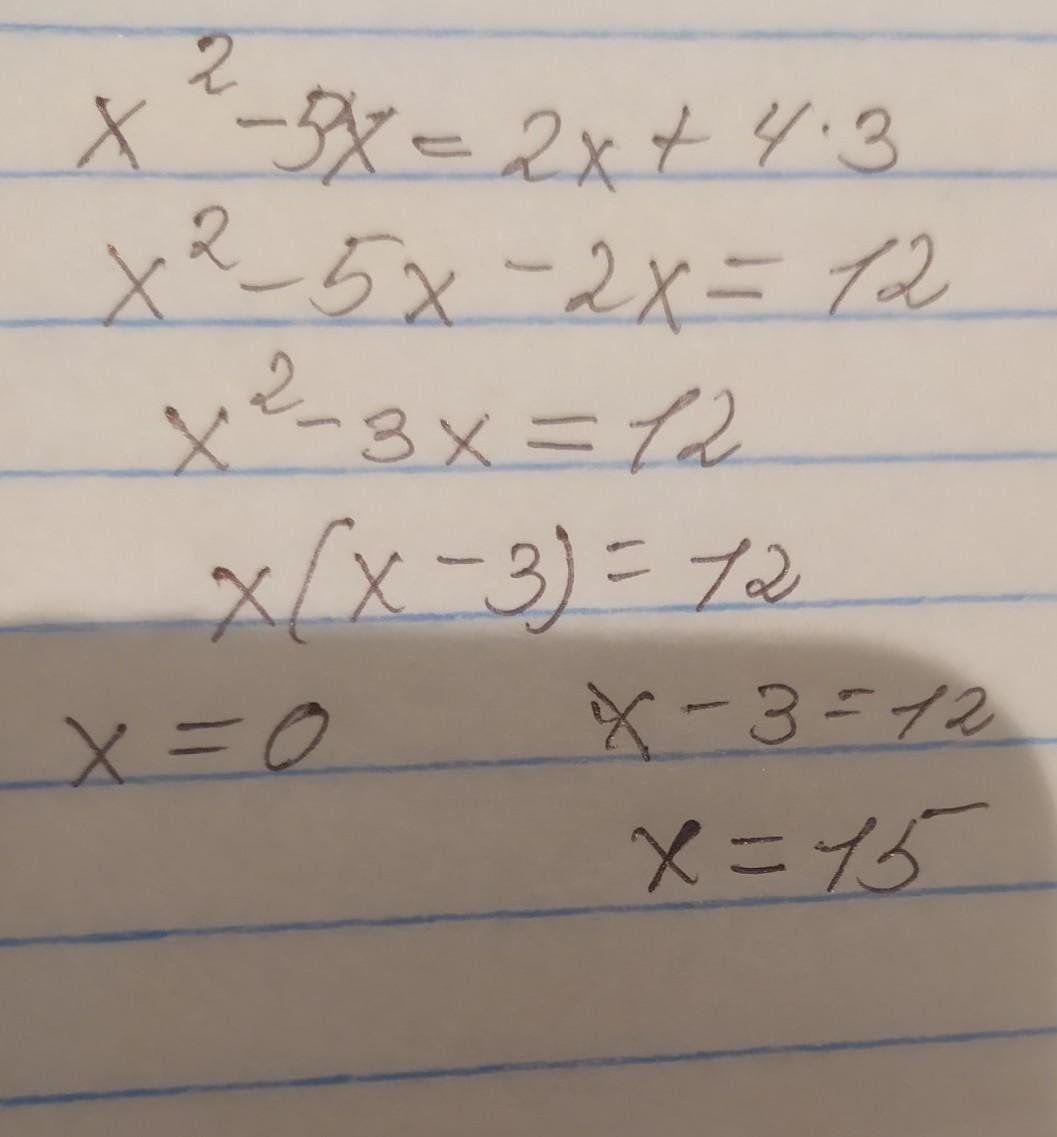 x² - 5x = 2x + 4·3
x² - 5x - 2x = 12
x² - 3x = 12
x(x - 3) = 12
x = 0 x - 3 = 12
x = 15